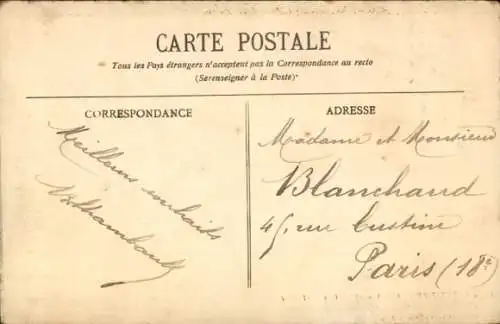 CARTE POSTALE
Tous les Pays étrangers n'acceptent pas la Correspondance au recto
(Se renseigner à la Poste)
CORRESPONDANCE
Meilleurs souhaits
ADRESSE
Madame et Monsieur
Blanchaud
rue Custine
Paris (18e)